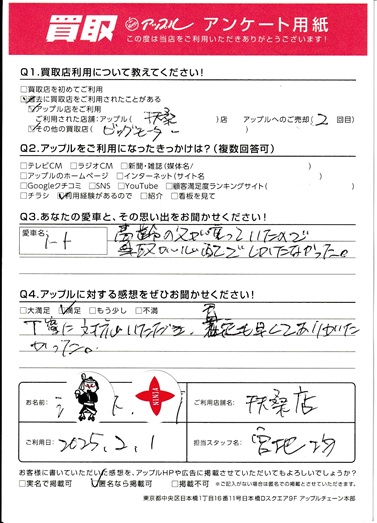 買取 アップル アンケート用紙
この度は当店をご利用いただきありがとうございます!
Q1.買取店利用について教えてください!
□買取店を初めてご利用
☑過去に買取店をご利用されたことがある
☑アップル店をご利用
ご利用された店舗:アップル( 扶桑 )店 アップルへのご売却( 2 回目)
☑その他の買取店( ビッグモーター )
Q2.アップルをご利用になったきっかけは?(複数回答可)
□テレビCM □ラジオCM □新聞・雑誌(媒体名/ )
□アップルのホームページ □インターネット(サイト名 )
□Googleクチコミ □SNS □YouTube □顧客満足度ランキングサイト( )
□チラシ ☑利用経験があるので □紹介 □看板を見て
Q3.あなたの愛車と、その思い出をお聞かせください!
愛車名
高齢の父が乗っていたので
Q4.アップルに対する感想をぜひお聞かせください!
□大満足 ☑満足 □もう少し □不満
丁寧に対応いただき、査定も早くてありがた
かった。
お名前:
ご利用店舗名: 扶桑店
ご利用日: 2025.2.1
担当スタッフ名: 宮地
お客様に書いていただいた感想を、アップルHPや広告に掲載させていただいてもよろしいでしょうか?
□実名で掲載可 ☑匿名なら掲載可 □掲載不可 ※ご記入がない場合は匿名での掲載とさせていただきます。
東京都中央区日本橋1丁目16番11号日本橋Dスクエア9F アップルチェーン本部